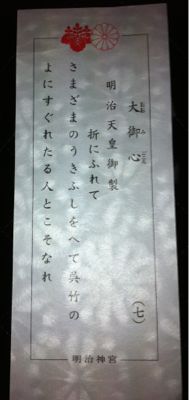 大御心
おおみごころ
(七)
明治天皇御製
折にふれて
さまざまのうきふしをへて呉竹の
よにすぐれたる人とこそなれ
明治神宮